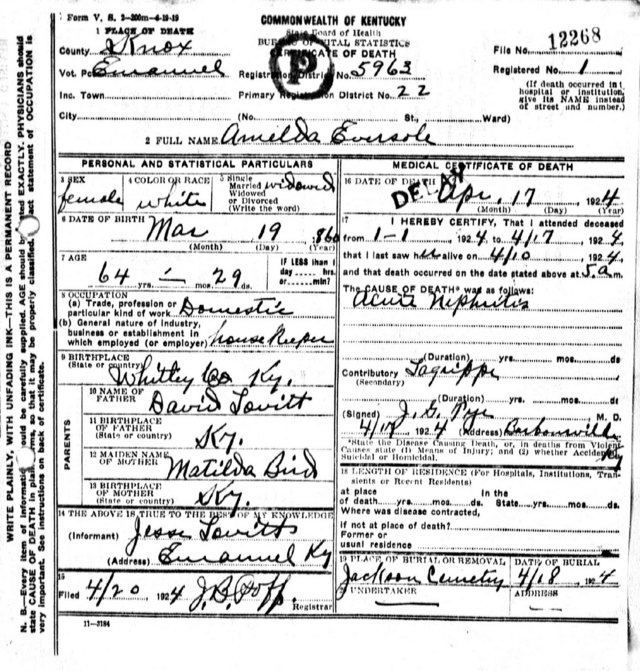 Form V. S. 2-200m-4-19-19
COMMONWEALTH OF KENTUCKY
State Board of Health
BUREAU OF VITAL STATISTICS
CERTIFICATE OF DEATH
1 PLACE OF DEATH
County Knox
File No. 12268
Vot. Pct. Emanuel
Registration District No. 5963
Registered No. 1
Inc. Town
Primary Registration District No. 22
(If death occurred in hospital or institution, give its NAME instead of street and number.)
City (No. St., Ward)
2 FULL NAME Amelda Eversole
PERSONAL AND STATISTICAL PARTICULARS
3 SEX
female
4 COLOR OR RACE
White
5 Single
Married widowed
Widowed
or Divorced
(Write the word)
6 DATE OF BIRTH
Mar 19 1860
(Month) (Day) (Year)
7 AGE
64 yrs. — mos. 29 ds.
IF LESS than 1 day ----- hrs. or ----- min?
8 OCCUPATION
(a) Trade, profession or
particular kind of work Domestic
(b) General nature of industry,
business or establishment in
which employed (or employer) house Keeper
9 BIRTHPLACE
(State or country)
Whitley Co Ky.
PARENTS
10 NAME OF
FATHER
David Lovitt
11 BIRTHPLACE
OF FATHER
(State or country)
Ky.
12 MAIDEN NAME
OF MOTHER
Matilda Bird
13 BIRTHPLACE
OF MOTHER
(State or country)
Ky.
14 THE ABOVE IS TRUE TO THE BEST OF MY KNOWLEDGE
(Informant) Jesse Lovitt
(Address) Emanuel Ky
15
Filed 4/20 1924 J.B. Poff.
Registrar
11-3184
MEDICAL CERTIFICATE OF DEATH
DELAY
16 DATE OF DEATH Apr. 17 1924
(Month) (Day) (Year)
17 I HEREBY CERTIFY, That I attended deceased
from 1-1 1924 to 4/17 1924,
that I last saw her alive on 4/10 1924,
and that death occurred on the date stated above at 5 a m.
The CAUSE OF DEATH* was as follows:
Acute Nephritis
(Duration) yrs. mos. ds.
Contributory Lagrippe
(Secondary)
(Duration) yrs. mos. ds.
(Signed) M. D.
1924 (Address) Barbourville
Ky
*State the Disease Causing Death, or, in deaths from Violent Causes state (1) Means of Injury; and (2) whether Accidental, Suicidal or Homicidal.
18 LENGTH OF RESIDENCE (For Hospitals, Institutions, Transients or Recent Residents)
at place In the
of death yrs. mos. ds. State yrs. mos. ds.
Where was disease contracted,
if not at place of death?
Former or
usual residence
19 PLACE OF BURIAL OR REMOVAL
Jackson Cemetry
DATE OF BURIAL
4/18, 1924
UNDERTAKER
ADDRESS
WRITE PLAINLY, WITH UNFADING INK—THIS IS A PERMANENT RECORD
N. B.—Every item of information should be carefully supplied. AGE should be stated EXACTLY. PHYSICIANS should
state CAUSE OF DEATH in plain terms, so that it may be properly classified. Exact statement of OCCUPATION is
very important. See instructions on back of certificate.